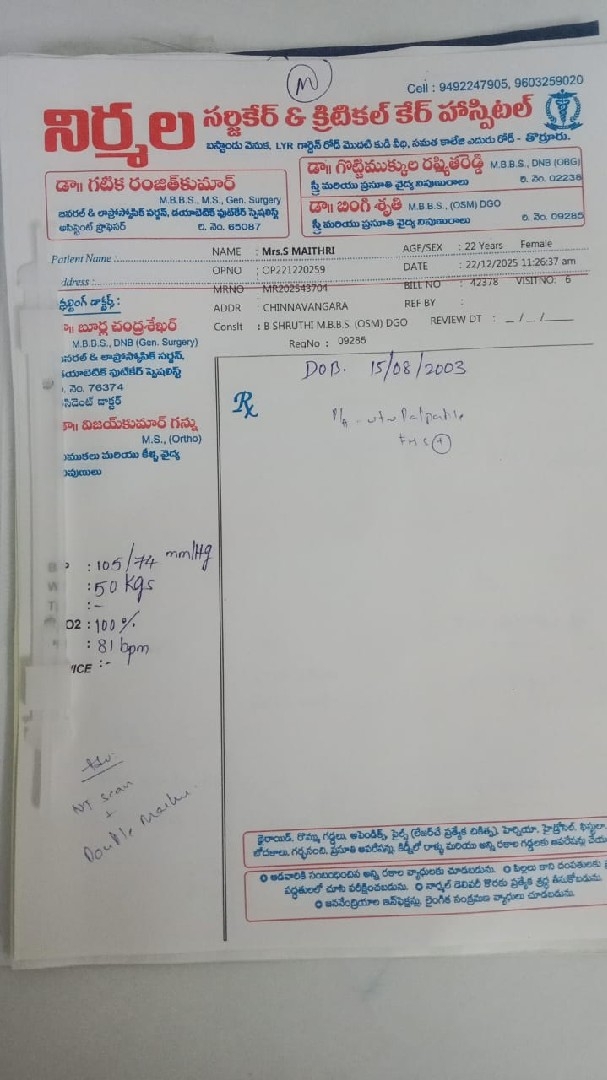 M
Cell : 9492247905, 9603259020
నిర్మల సర్జికేర్ & క్రిటికల్ కేర్ హాస్పిటల్
బస్టాండు వెనుక, LYR గార్డెన్ రోడ్ మొదటి కుడి వీధి, సమత కాలేజి ఎదురు రోడ్ - తొర్రూరు.
డా॥ గటిక రంజిత్‌కుమార్
M.B.B.S., M.S., Gen. Surgery
జనరల్ & లాప్రోస్కోపిక్ సర్జన్, డయాబెటిక్ ఫుట్‌కేర్ స్పెషలిస్ట్
అసిస్టెంట్ ప్రొఫెసర్ రి. నెం. 65087
డా॥ గొట్టిముక్కుల రష్మితరెడ్డి M.B.B.S., DNB (OBG)
స్త్రీ మరియు ప్రసూతి వైద్య నిపుణురాలు రి. నెం. 02238
డా॥ బింగి శృతి M.B.B.S., (OSM) DGO
స్త్రీ మరియు ప్రసూతి వైద్య నిపుణురాలు రి. నెం. 09285
Patient Name :
NAME : Mrs.S MAITHRI AGE/SEX : 22 Years Female
OPNO : OP221220259 DATE : 22/12/2025 11:26:37 am
ddress :
MRNO : MR202543704 BILL NO : 42378 VISITNO: 6
ADDR CHINNAVANGARA REF BY :
Conslt : B SHRUTHI M.B.B.S (OSM) DGO REVIEW DT : _ / _ / _
RegNo : 09285
ల్టింగ్ డాక్టర్స్ :
బూర్ల చంద్రశేఖర్
M.B.B.S., DNB (Gen. Surgery)
జనరల్ & లాప్రోస్కోపిక్ సర్జన్,
డయాబెటిక్ ఫుట్‌కేర్ స్పెషలిస్ట్
. నెం. 76374
సిడెంట్ డాక్టర్
డా॥ విజయ్‌కుమార్ గన్ను
M.S., (Ortho)
ఎముకలు మరియు కీళ్ళ వైద్య
నిపుణులు
DOB. 15/08/2003
Rx
P/A - ut Palpable
FHS +
: 105/74 mm/Hg
W : 50 Kgs
T : -
O2 : 100%
: 81 bpm
ICE : -
Adv:
NT scan
+
Double Marker.
థైరాయిడ్, రొమ్ము గడ్డలు, అపెండిక్స్, పైల్స్ (లేజర్‌చే ప్రత్యేక చికిత్స), హెర్నియా, హైడ్రోసిల్, ఫిస్టులా,
బోదకాలు, గర్భసంచి, ప్రసూతి ఆపరేషన్లు, కిడ్నీలో రాళ్ళు మరియు అన్ని రకాల గడ్డలకు ఆపరేషన్లు
ఆడవారికి సంబంధించిన అన్ని రకాల వ్యాధులకు చూడబడును. పిల్లలు కాని దంపతులకు
పద్ధతులలో చూసి పరీక్షించబడును. నార్మల్ డెలివరీ కొరకు ప్రత్యేక శ్రద్ధ తీసుకోబడును.
జననేంద్రియాల ఇన్‌ఫెక్షన్లు, లైంగిక సంక్రమణ వ్యాధులు చూడబడును.